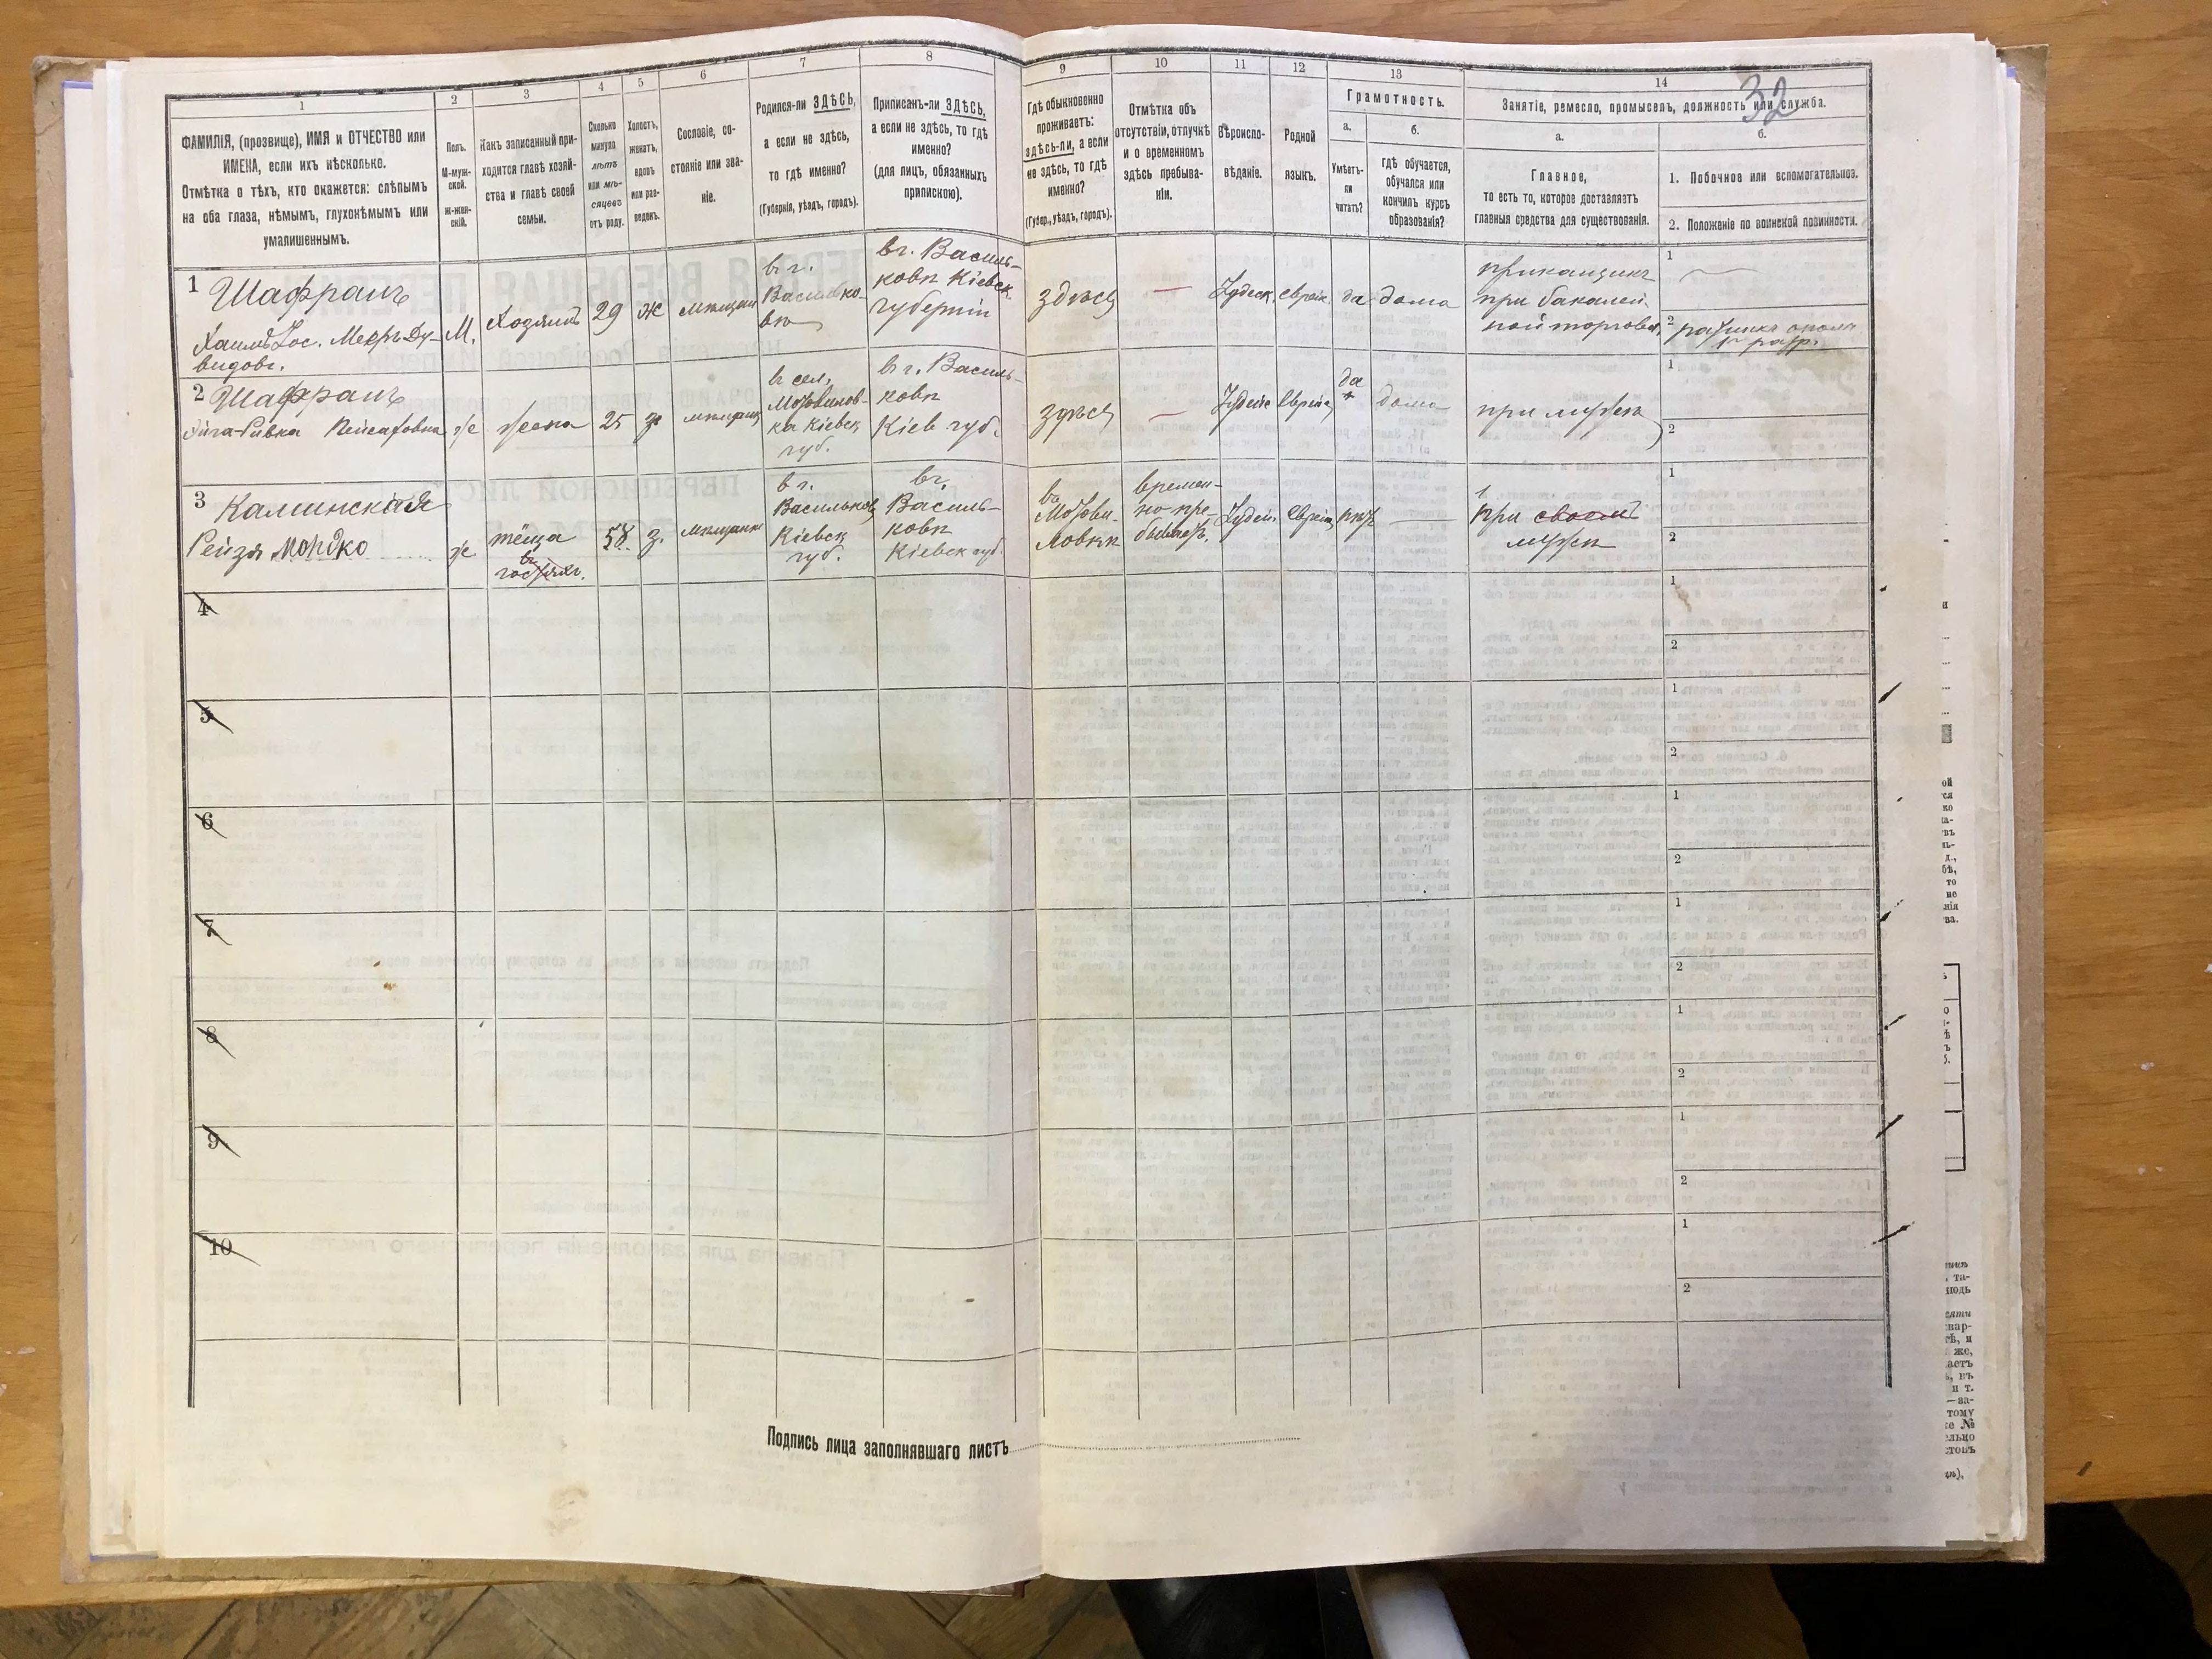 32
1
2
3
4
5
6
7
8
9
10
11
12
13
14
ФАМИЛІЯ, (прозвище), ИМЯ и ОТЧЕСТВО или
ИМЕНА, если ихъ нѣсколько.
Отмѣтка о тѣхъ, кто окажется: слѣпымъ
на оба глаза, нѣмымъ, глухонѣмымъ или
умалишеннымъ.
Полъ.
М-муж-
ской.
Ж-жен-
скій.
Какъ записанный при-
ходится главѣ хозяй-
ства и главѣ своей
семьи.
Сколько
минуло
лѣтъ
или мѣ-
сяцевъ
отъ роду.
Холостъ,
женатъ,
вдовъ
или раз-
веденъ.
Сословіе, со-
стояніе или зва-
ніе.
Родился-ли ЗДѢСЬ,
а если не здѣсь,
то гдѣ именно?
(Губернія, уѣздъ, городъ).
Приписанъ-ли ЗДѢСЬ,
а если не здѣсь, то гдѣ
именно?
(для лицъ, обязанныхъ
припискою).
Гдѣ обыкновенно
проживаетъ:
здѣсь-ли, а если
не здѣсь, то гдѣ
именно?
(Губер., уѣздъ, городъ).
Отмѣтка объ
отсутствіи, отлучкѣ
и о временномъ
здѣсь пребыва-
ніи.
Вѣроиспо-
вѣданіе.
Родной
языкъ.
Грамотность.
а.
Умѣетъ-
ли
читать?
б.
гдѣ обучается,
обучался или
кончилъ курсъ
образованія?
Занятіе, ремесло, промыселъ, должность или служба.
а.
Главное,
то есть то, которое доставляетъ
главныя средства для существованія.
б.
1. Побочное или вспомогательное.
2. Положеніе по воинской повинности.
1 Шафранъ
Хаимъ Іос. Меер Ду-
видовъ.
М.
Хозяинъ
29
ж
мѣщан
въ г.
Василько-
вѣ
въ г. Василь-
ковѣ Кіевск.
губерніи
здѣсь
—
Іудейск.
еврейс.
да
дома
приказчикъ
при бакалей.
ной торговл.
1
2
1го разр.
2 Шафранъ
Ривка
ж
жена
25
з
мѣщан
въ сел.
Мотовилов-
ка Кіевск
губ.
въ г. Василь-
ковѣ
Кіев губ.
здѣсь
—
Іудейс
Еврейс
да
дома
при мужѣ
1
2
3 Каминская
Рейзя Мордко
ж
тёща
58
з.
мѣщанк
въ г.
Васильков
Кіевск
губ.
въ г.
Василь-
ковѣ
Кіевск губ.
въ
Мотови-
ловкѣ
времен-
но пре-
бываетъ.
Іудей.
Еврей
нѣт
—
при своемъ
мужѣ
1
2
4
1
2
5
1
2
6
1
2
7
1
2
8
1
2
9
1
2
10
1
2
Подпись лица заполнявшаго листъ